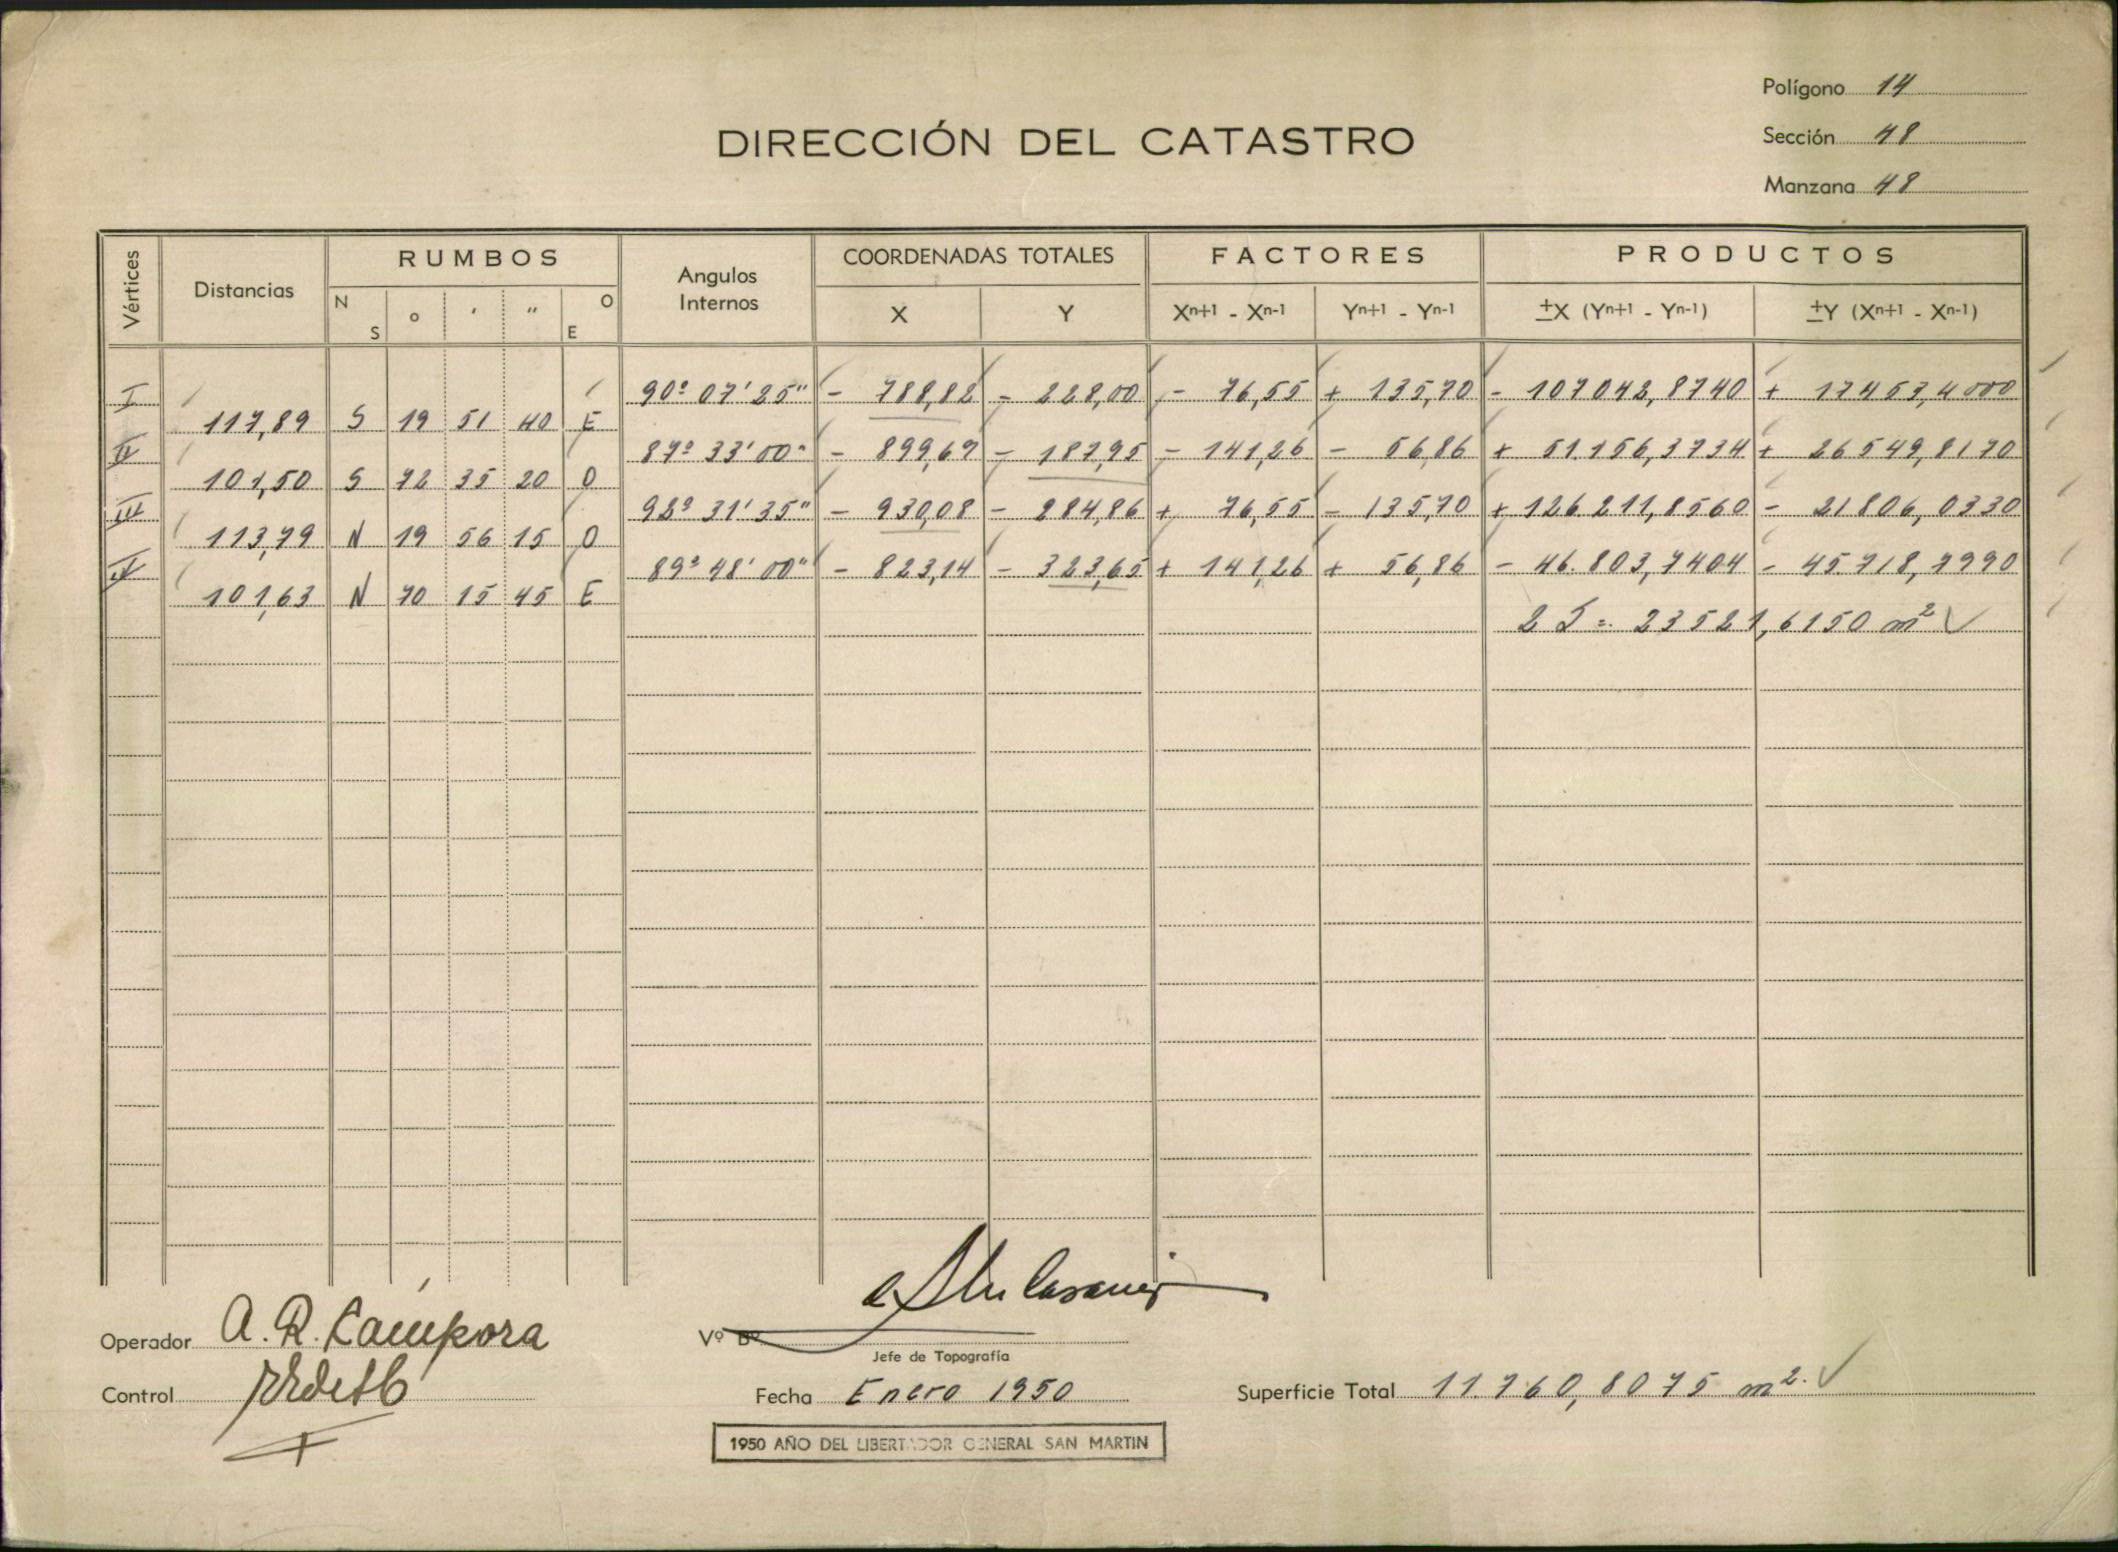 Polígono 14
DIRECCIÓN DEL CATASTRO
Sección 48
Manzana 48
Vértices Distancias RUMBOS Angulos Internos COORDENADAS TOTALES FACTORES PRODUCTOS
N S o ′ ″ O E X Y Xn+1 - Xn-1 Yn+1 - Yn-1 ±X (Yn+1 - Yn-1) ±Y (Xn+1 - Xn-1)
I 90º 07' 25" - 788,82 - 228,00 - 76,55 + 135,70 - 107042,8740 + 17453,4000
117,89 S 19 51 40 E
II 87º 33' 00" - 899,69 - 187,95 - 141,26 - 56,86 + 51.156,3734 + 26549,8170
101,50 S 72 35 20 O
III 92º 31' 35" - 930,08 - 284,86 + 76,55 - 135,70 + 126211,8560 - 21806,0330
113,79 N 19 56 15 O
IV 89º 48' 00" - 823,14 - 323,65 + 141,26 + 56,86 - 46.803,7404 - 45.718,7990
101,63 N 70 15 45 E
2 S = 23521,6150 m²
Operador A. R. Cámpora
Vº Bº
Jefe de Topografía
Control
Fecha Enero 1950
Superficie Total 11.760,8075 m²
1950 AÑO DEL LIBERTADOR GENERAL SAN MARTIN